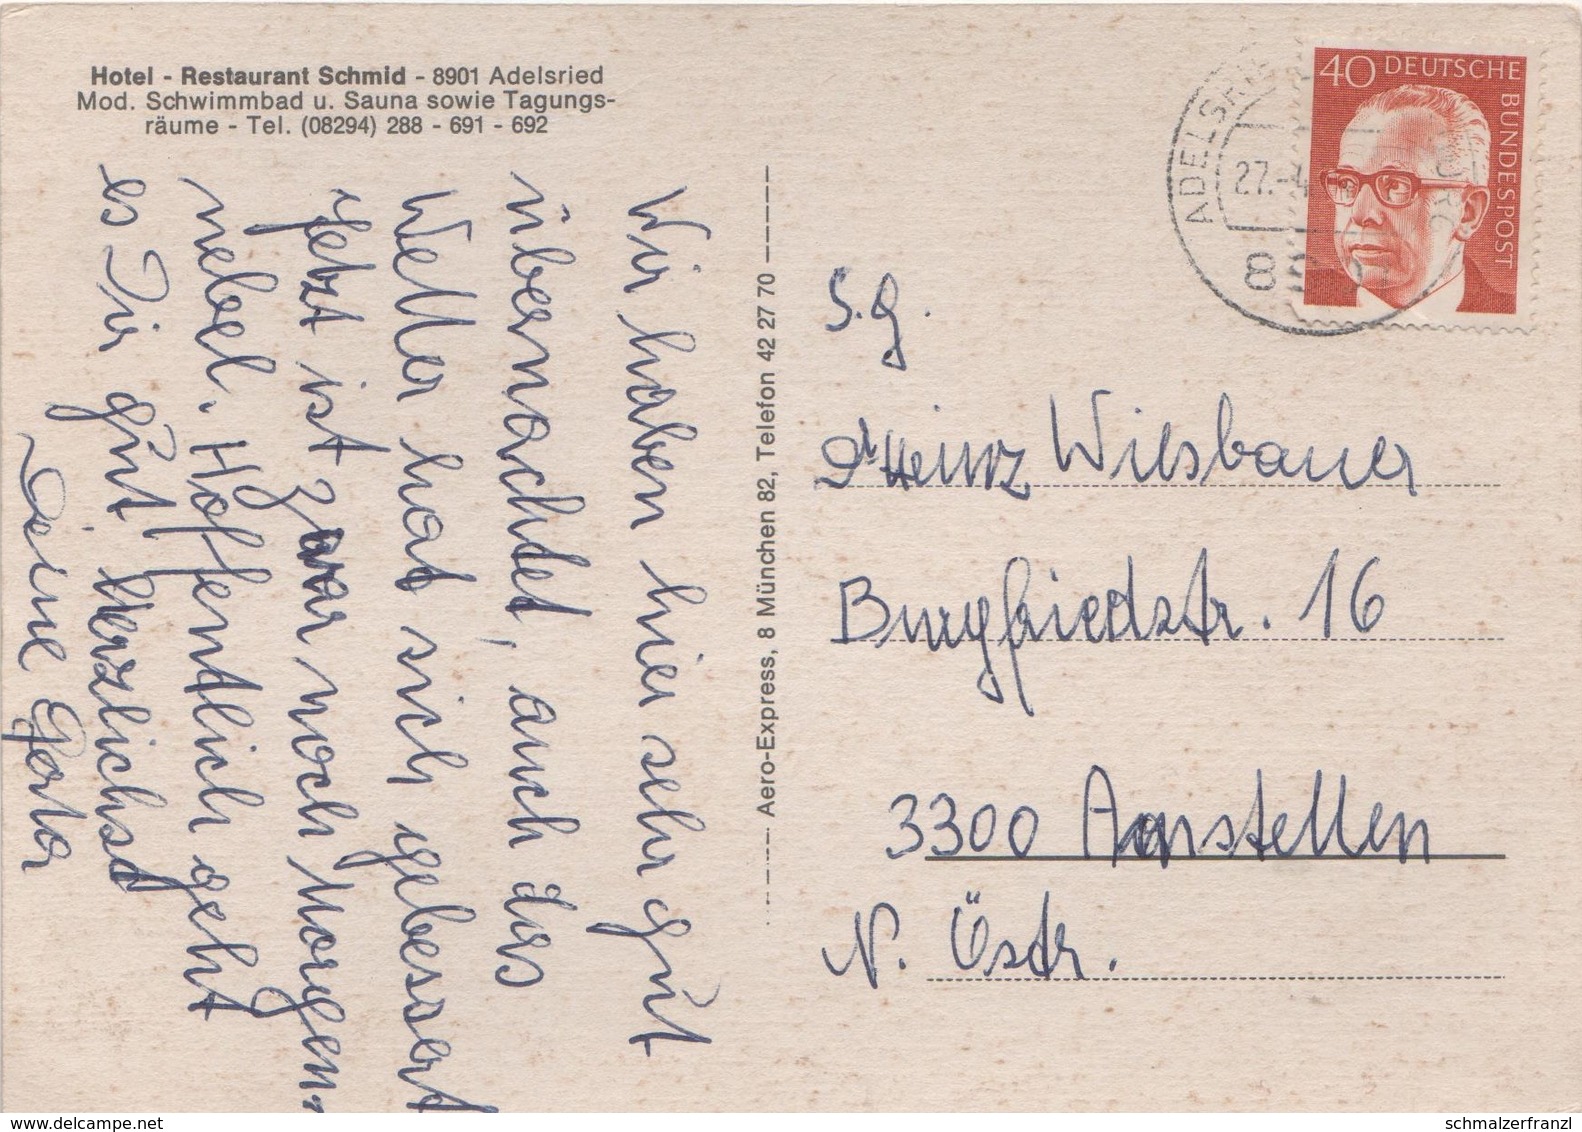 Hotel - Restaurant Schmid - 8901 Adelsried
Mod. Schwimmbad u. Sauna sowie Tagungs-
räume - Tel. (08294) 288 - 691 - 692
Wir haben hier sehr gut
übernachtet, auch das
Wetter hat sich gebessert
jetzt ist zwar noch Morgen-
nebel. Hoffentlich geht
es Dir gut, herzlichst
Deine
Aero-Express, 8 München 82, Telefon 42 27 70
ADELSRIED
27.-4
40 DEUTSCHE BUNDESPOST
S.g.
Heinz Wiesbauer
Burgfriedstr. 16
3300 Amstetten
N. Östr.
schmalzerfranzl
www.delcampe.net